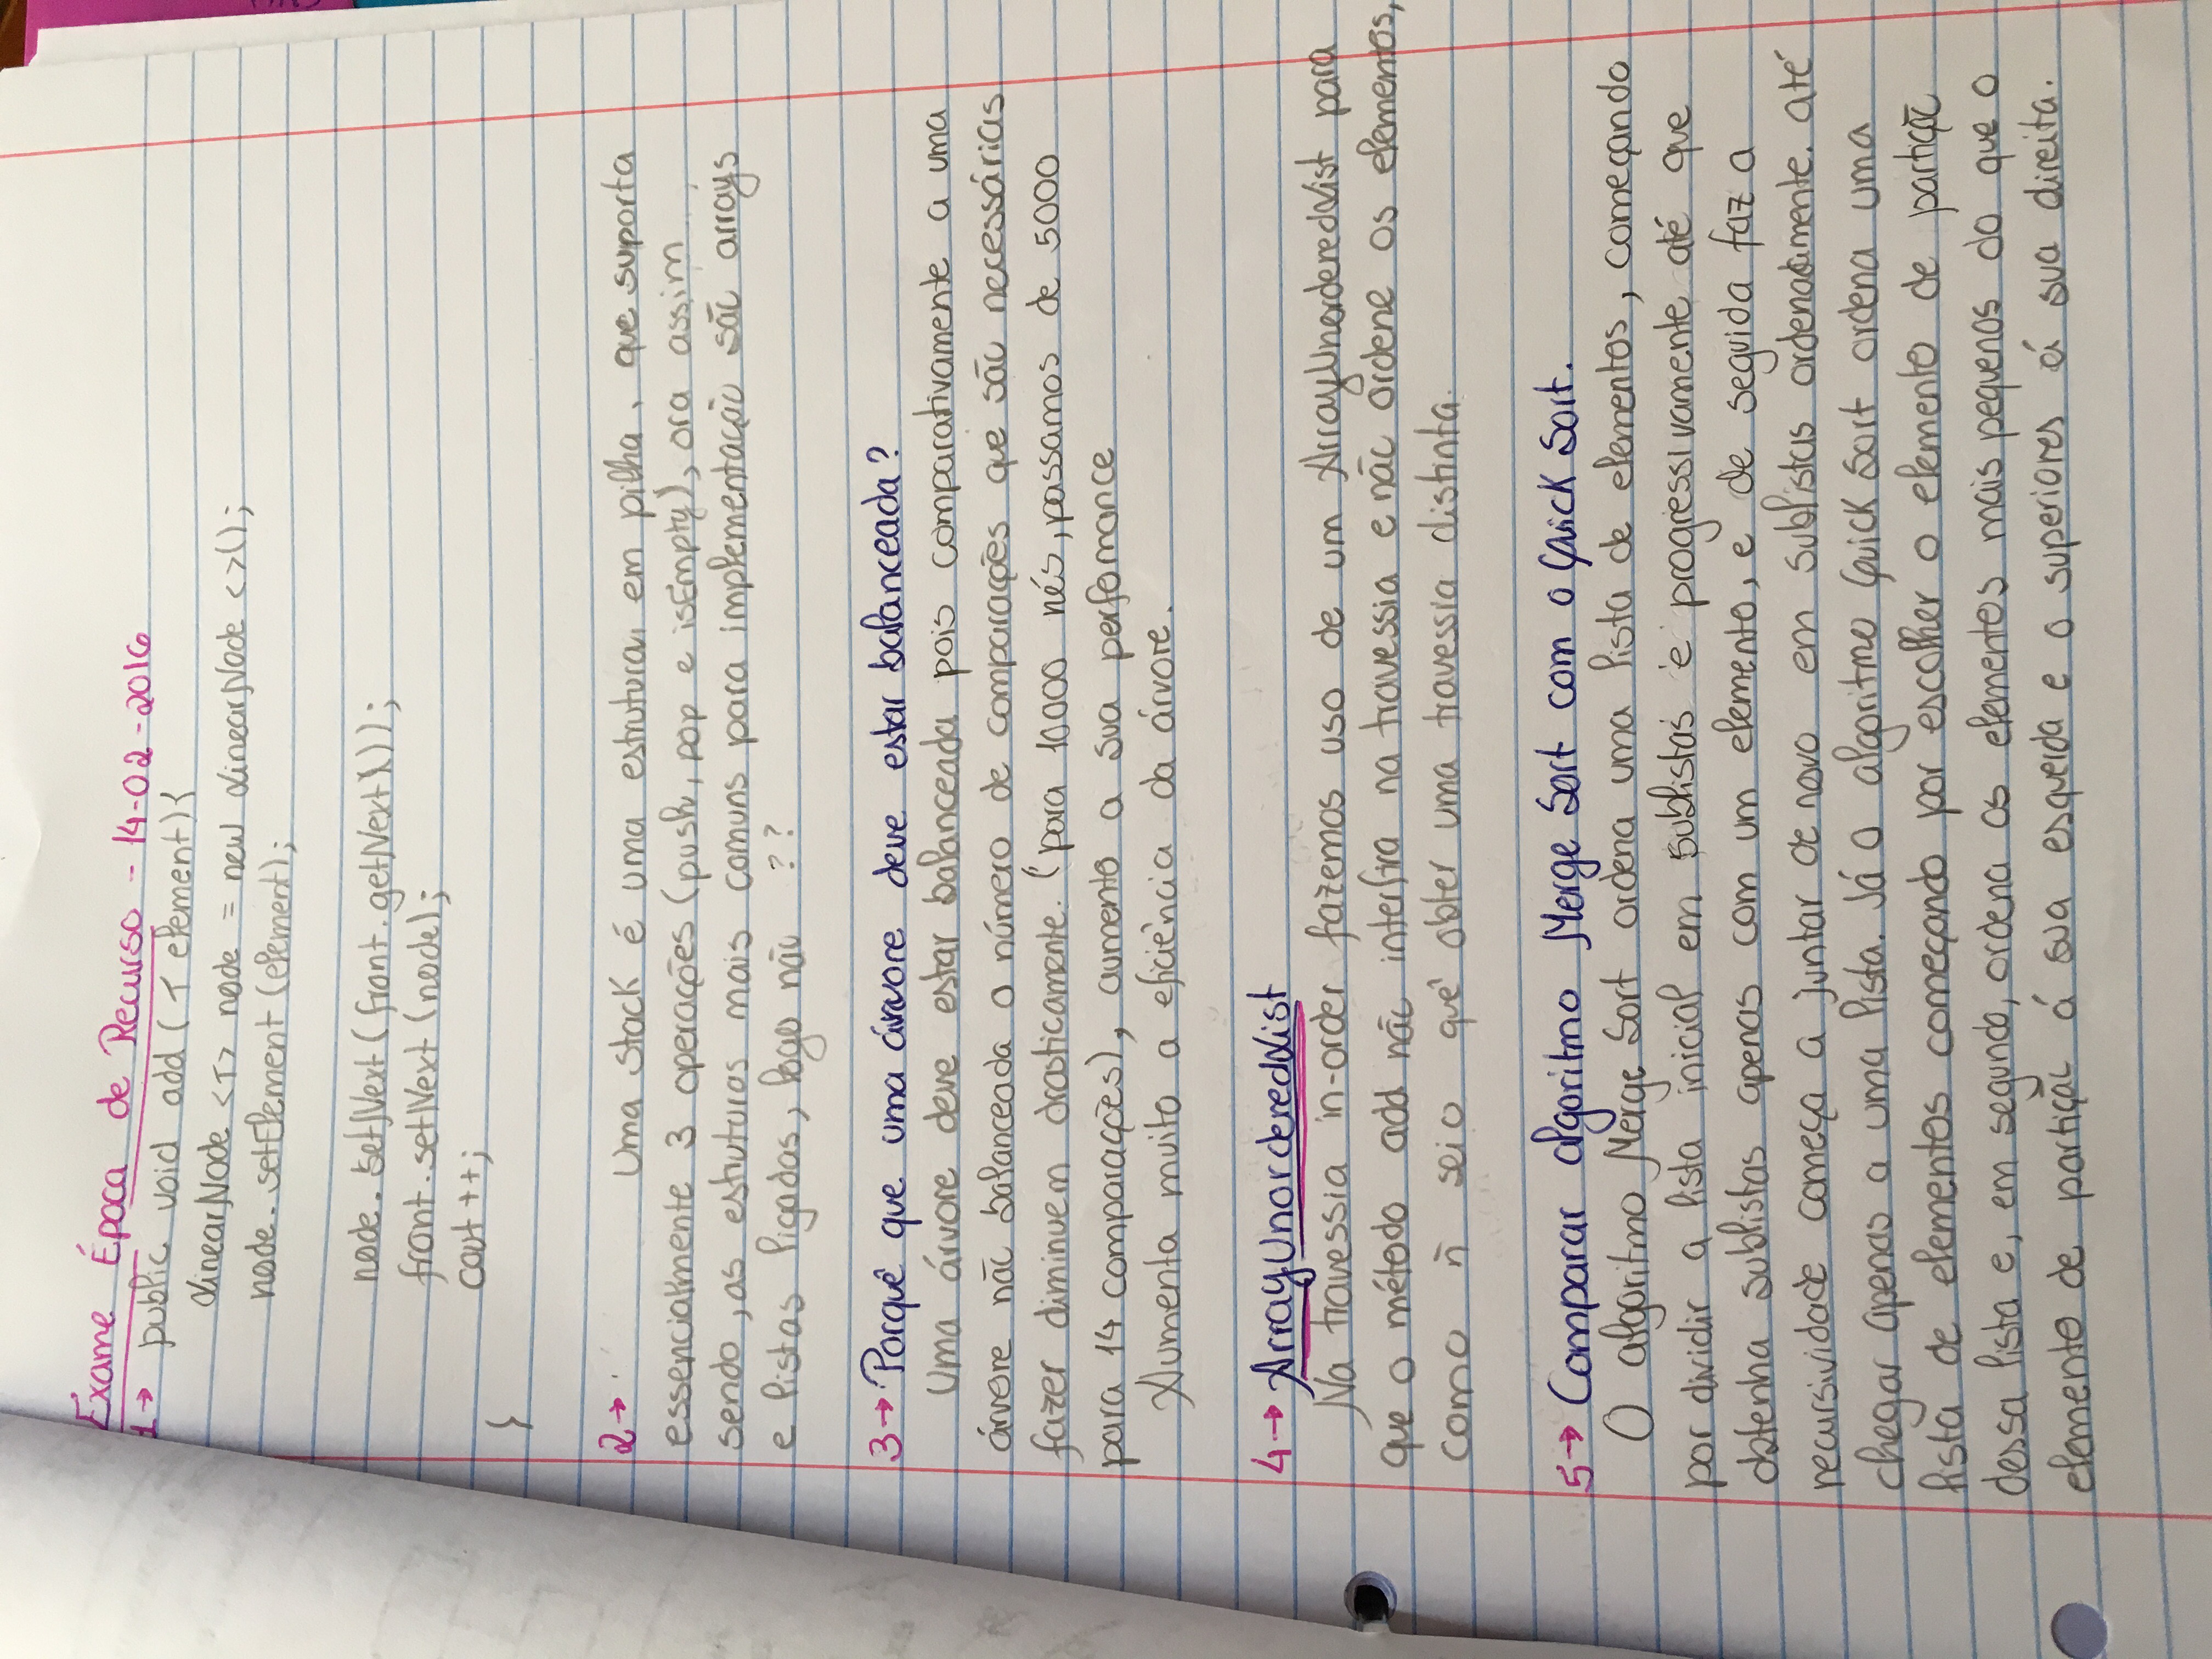 Exame Época de Recurso - 14-02-2016
1→ public void add (T element){
LinearNode <T> node = new LinearNode <>();
node.setElement (element);
node.setNext (front.getNext());
front.setNext (node);
cout ++;
}
2→ Uma stack é uma estrutura, em pilha, que suporta
essencialmente 3 operações (push, pop e isEmpty), ora assim
sendo, as estruturas mais comuns para implementação são arrays
e listas ligadas, logo não ??
3→ Porquê que uma árvore deve estar balanceada?
Uma árvore deve estar balanceada pois comparativamente a uma
árvore não balanceada o número de comparações que são necessárias
fazer diminuem drasticamente. (para 10000 nós, passamos de 5000
para 14 comparações), aumento a sua perfomance
Aumenta muito a eficiência da árvore.
4→ ArrayUnorderedList
Na travessia in-order fazemos uso de um ArrayUnorderedList para
que o método add não interfira na travessia e não ordene os elementos,
como ñ seio quê obter uma travessia distinta.
5→ Comparar algoritmo Merge Sort com o Quick Sort.
O algoritmo Merge Sort ordena uma lista de elementos, começando
por dividir a lista inicial em sublistas e progressivamente até que
obtenha sublistas apenas com um elemento, e de seguida faz a
recursividade começa a juntar de novo em sublistas ordenadamente. até
chegar apenas a uma lista. Já o algoritmo Quick Sort ordena uma
lista de elementos começando por escolher o elemento de partição
dessa lista e, em segundo, ordena os elementos mais pequenos do que o
elemento de partição á sua esquerda e o superiores á sua direita.